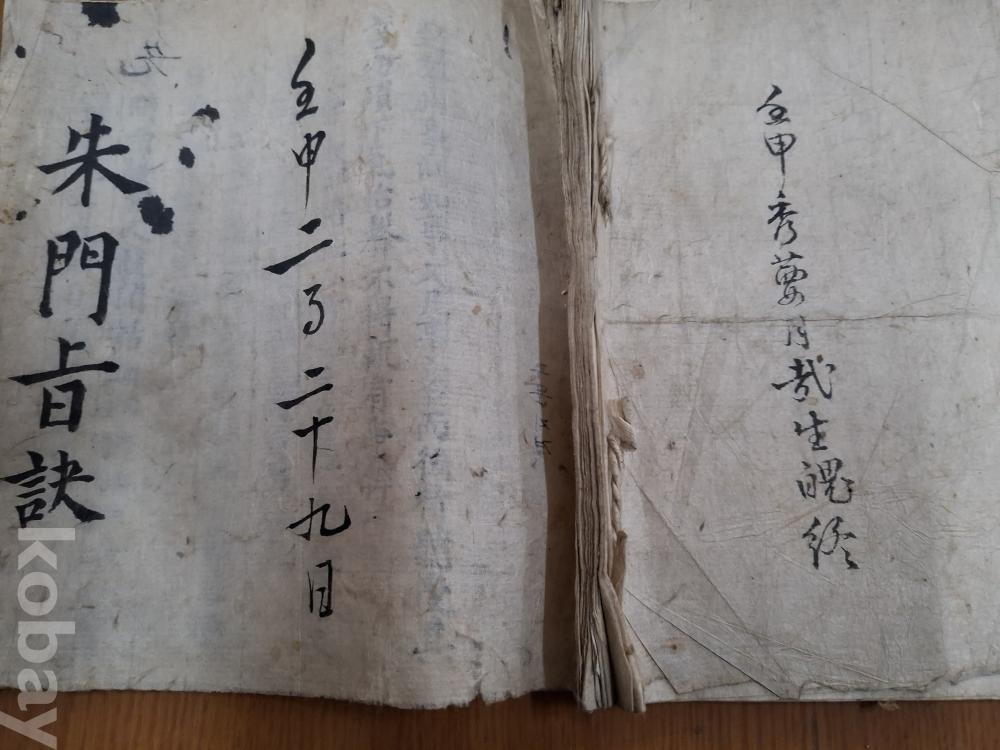 壬申秀葽月哉生魄終
壬申二月二十九日
朱門旨訣
kobay